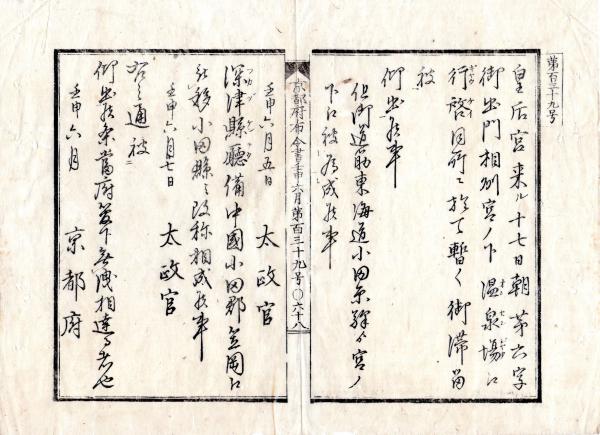 第百三十九号
皇后宮来ル十七日朝第六字
御出門相州宮ノ下温泉場江
行啓同所ニ於テ暫ク御滞留
被
仰出候事
但御道筋東海道小田原驛ゟ宮ノ
下江被為成候事
京都府布令書壬申六月第百三十九号〇六十八
壬申六月五日 太政官
深津縣廳備中國小田郡笠岡江
被移小田縣ニ改称相成候事
壬申六月七日 太政官
右之通被
仰出候条當府管下無洩相達る者也
壬申六月 京都府